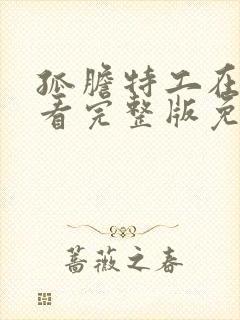 孤胆特工在
看完整版免
蔷薇之春